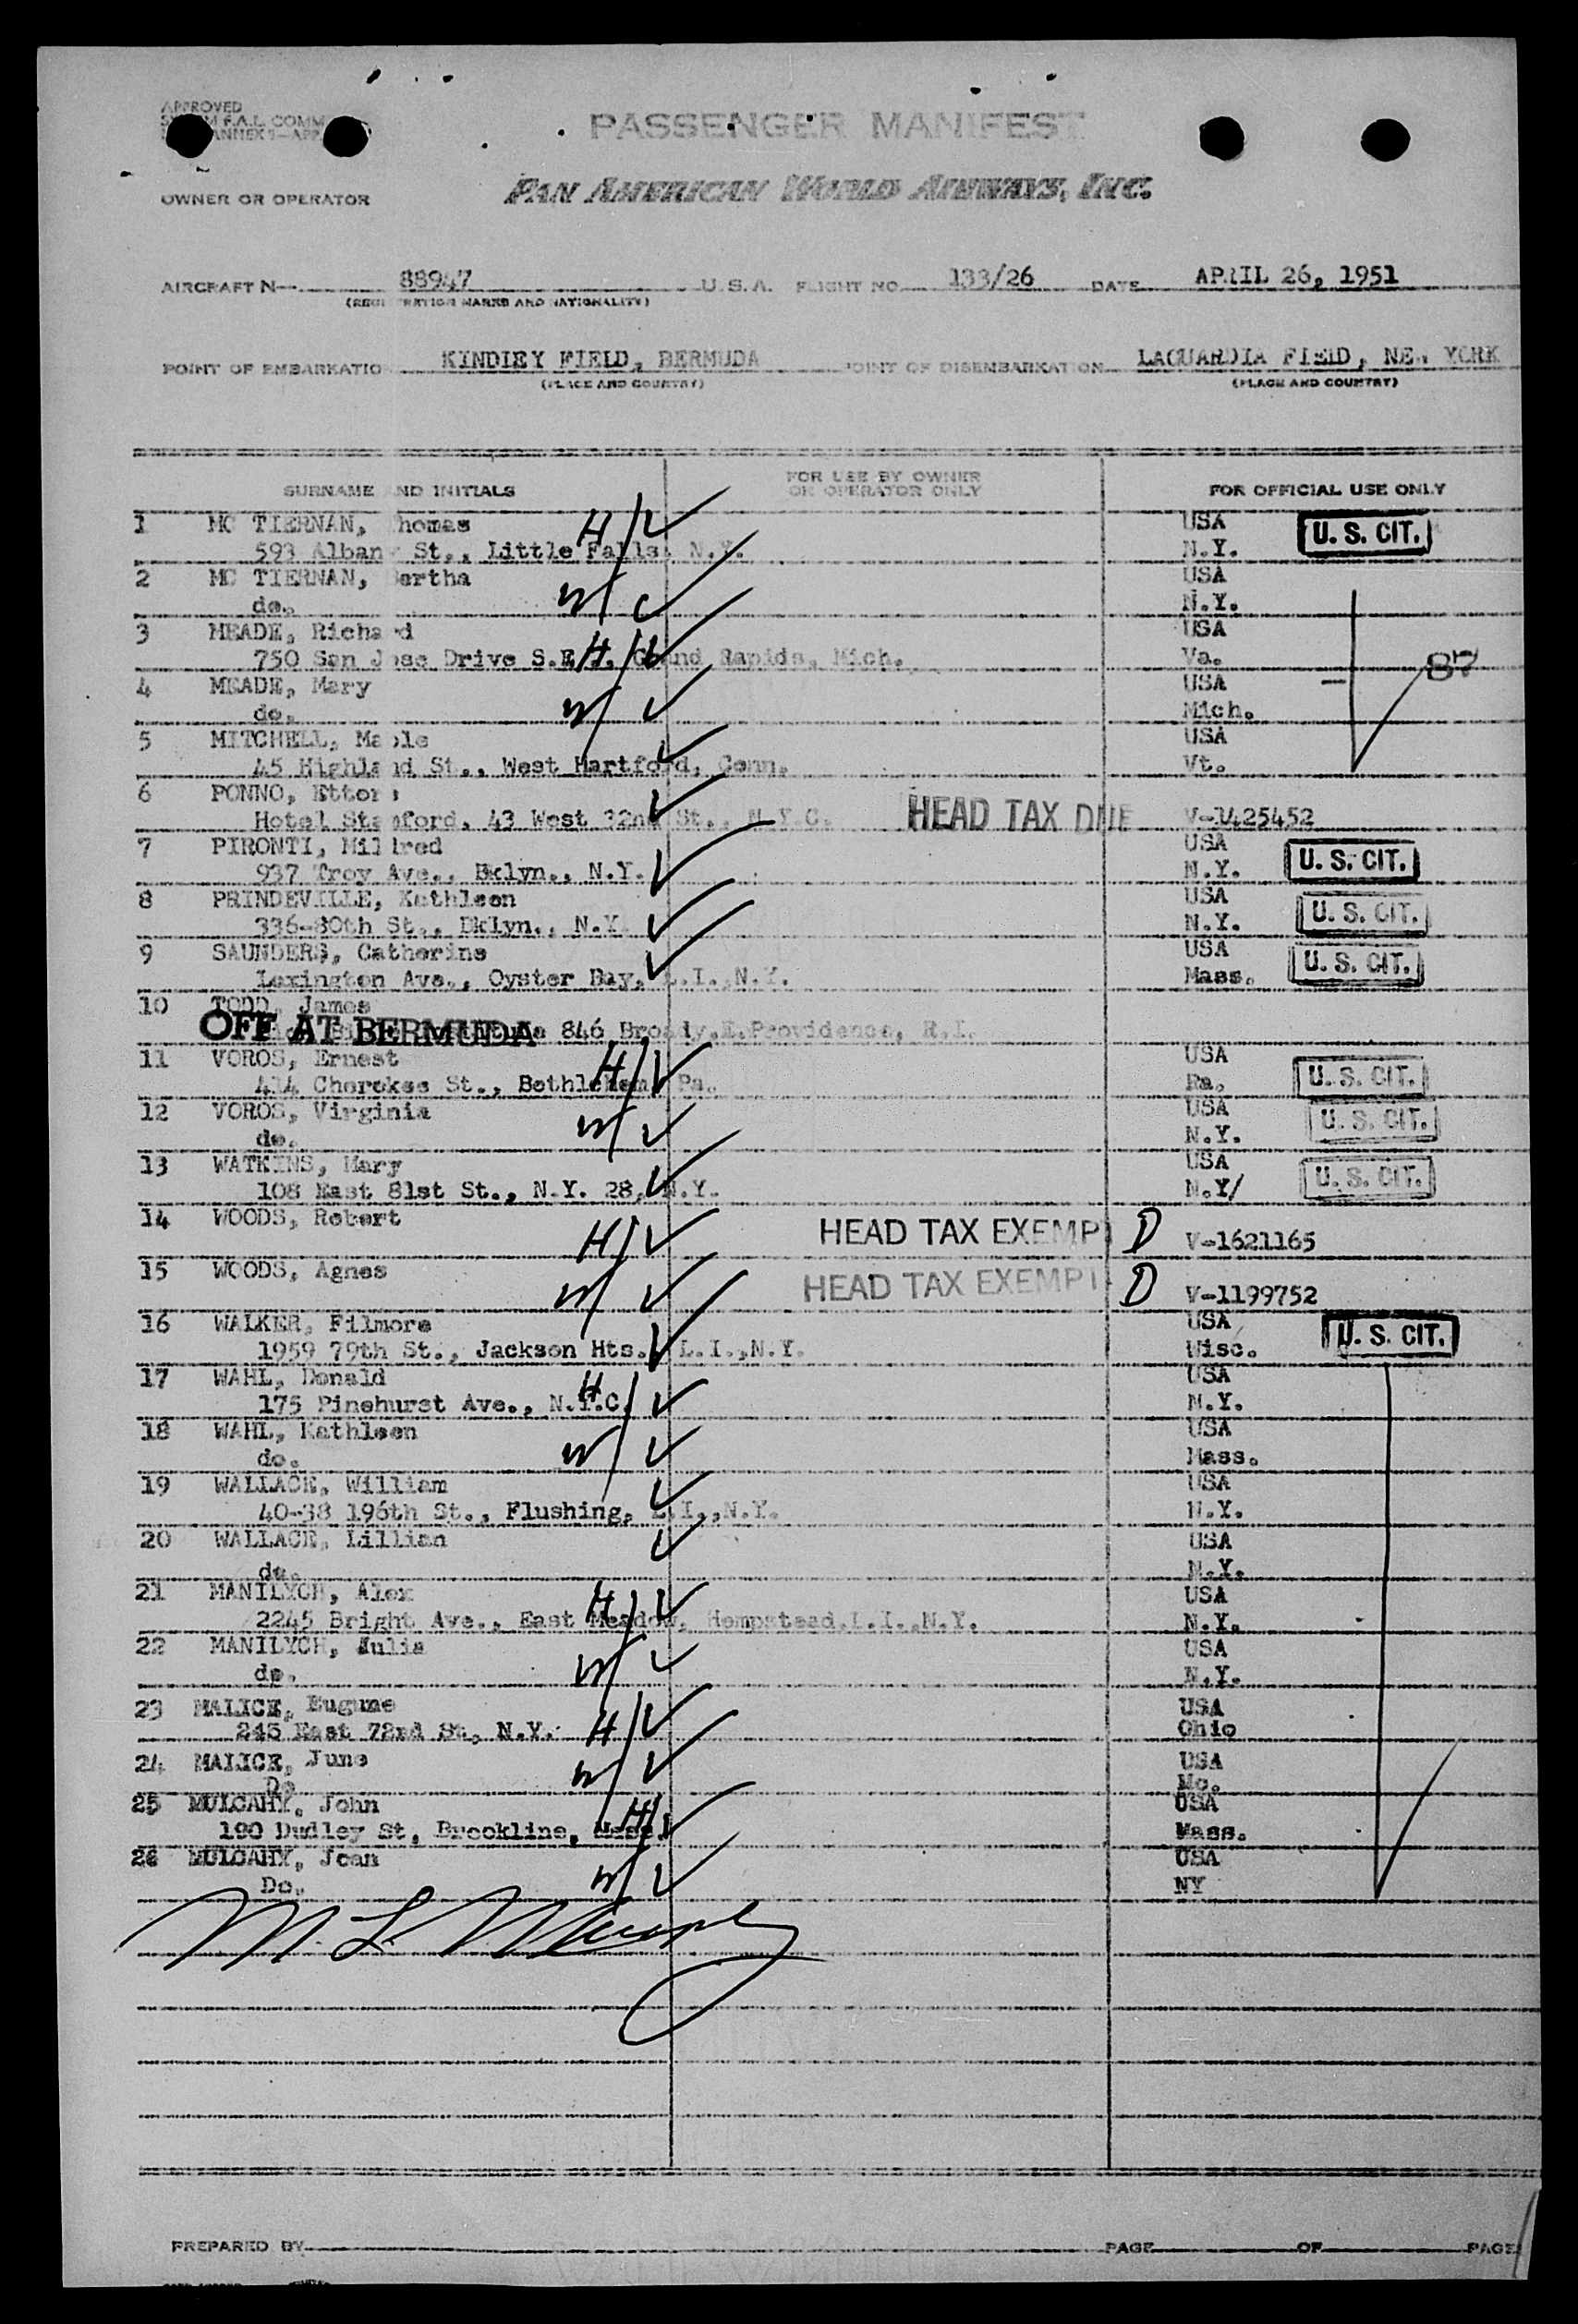 APPROVED
F.A.L. COMM
ANNEX
PASSENGER MANIFEST
OWNER OR OPERATOR PAN AMERICAN WORLD AIRWAYS, INC.
AIRCRAFT N— 88947 U.S.A. FLIGHT NO. 133/26 DATE APRIL 26, 1951
(REGISTRATION MARKS AND NATIONALITY)
POINT OF EMBARKATIO KINDLEY FIELD, BERMUDA POINT OF DISEMBARKATION LAGUARDIA FIELD, NEW YORK
(PLACE AND COUNTRY) (PLACE AND COUNTRY)
SURNAME AND INITIALS FOR USE BY OWNER OR OPERATOR ONLY FOR OFFICIAL USE ONLY
1 MC TIERNAN, Thomas H USA U. S. CIT.
593 Albany St., Little Falls, N.Y. N.Y.
2 MC TIERNAN, Bertha USA
do. W N.Y.
3 MEADE, Richard USA
750 San Jose Drive S.E. H Grand Rapids, Mich. Va. 87
4 MEADE, Mary USA
do. W Mich.
5 MITCHELL, Mable USA
45 Highland St., West Hartford, Conn. Vt.
6 PONNO, Ettore
Hotel Stamford, 43 West 32nd St., N.Y.C. HEAD TAX DUE V-1425452
7 PIRONTI, Mildred USA U. S. CIT.
937 Troy Ave., Bklyn., N.Y. N.Y.
8 PRINDEVILLE, Kathleen USA U. S. CIT.
336-80th St., Bklyn., N.Y. N.Y.
9 SAUNDERS, Catherine USA U. S. CIT.
Lexington Ave., Oyster Bay, L.I.,N.Y. Mass.
10 TODD, James
OFF AT BERMUDA 846 Broadway,E.Providence, R.I.
11 VOROS, Ernest H USA U. S. CIT.
414 Cherokee St., Bethlehem, Pa. Pa.
12 VOROS, Virginia USA U. S. CIT.
do. W N.Y.
13 WATKINS, Mary USA U. S. CIT.
108 East 81st St., N.Y. 28, N.Y. N.Y/
14 WOODS, Robert H HEAD TAX EXEMPT D V-1621165
15 WOODS, Agnes W HEAD TAX EXEMPT D V-1199752
16 WALKER, Filmore USA U. S. CIT.
1959 79th St., Jackson Hts. L.I.,N.Y. Wisc.
17 WAHL, Donald H USA
175 Pinehurst Ave., N.Y.C. N.Y.
18 WAHL, Kathleen USA
do. W Mass.
19 WALLACE, William USA
40-38 196th St., Flushing, L.I.,N.Y. N.Y.
20 WALLACE, Lillian USA
do. N.Y.
21 MANILYCH, Alex H USA
2245 Bright Ave., East Meadow, Hempstead,L.I.,N.Y. N.Y.
22 MANILYCH, Julia USA
do. W N.Y.
23 MALICE, Eugune USA
245 East 72nd St, N.Y. H Ohio
24 MALICE, June USA
Do W Mo.
25 MULCAHY, John H USA
190 Dudley St, Brookline, Mass. Mass.
26 MULCAHY, Joan USA
Do. W NY
PREPARED BY PAGE OF PAGE